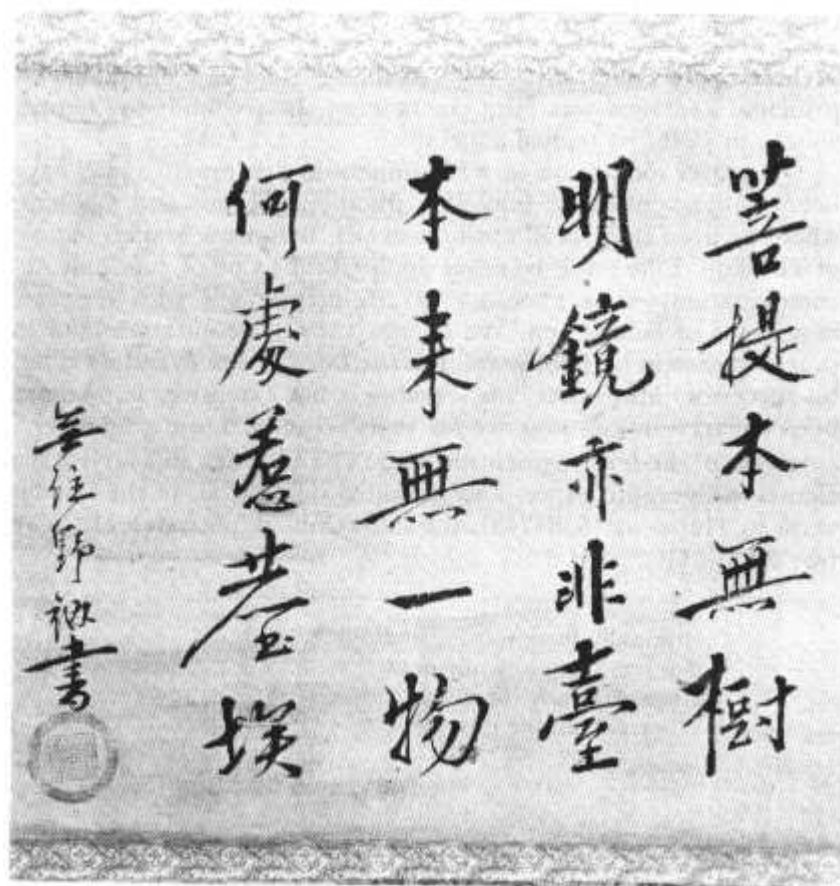 菩提本無樹
明鏡亦非臺
本来無一物
何處惹塵埃
無住野衲書